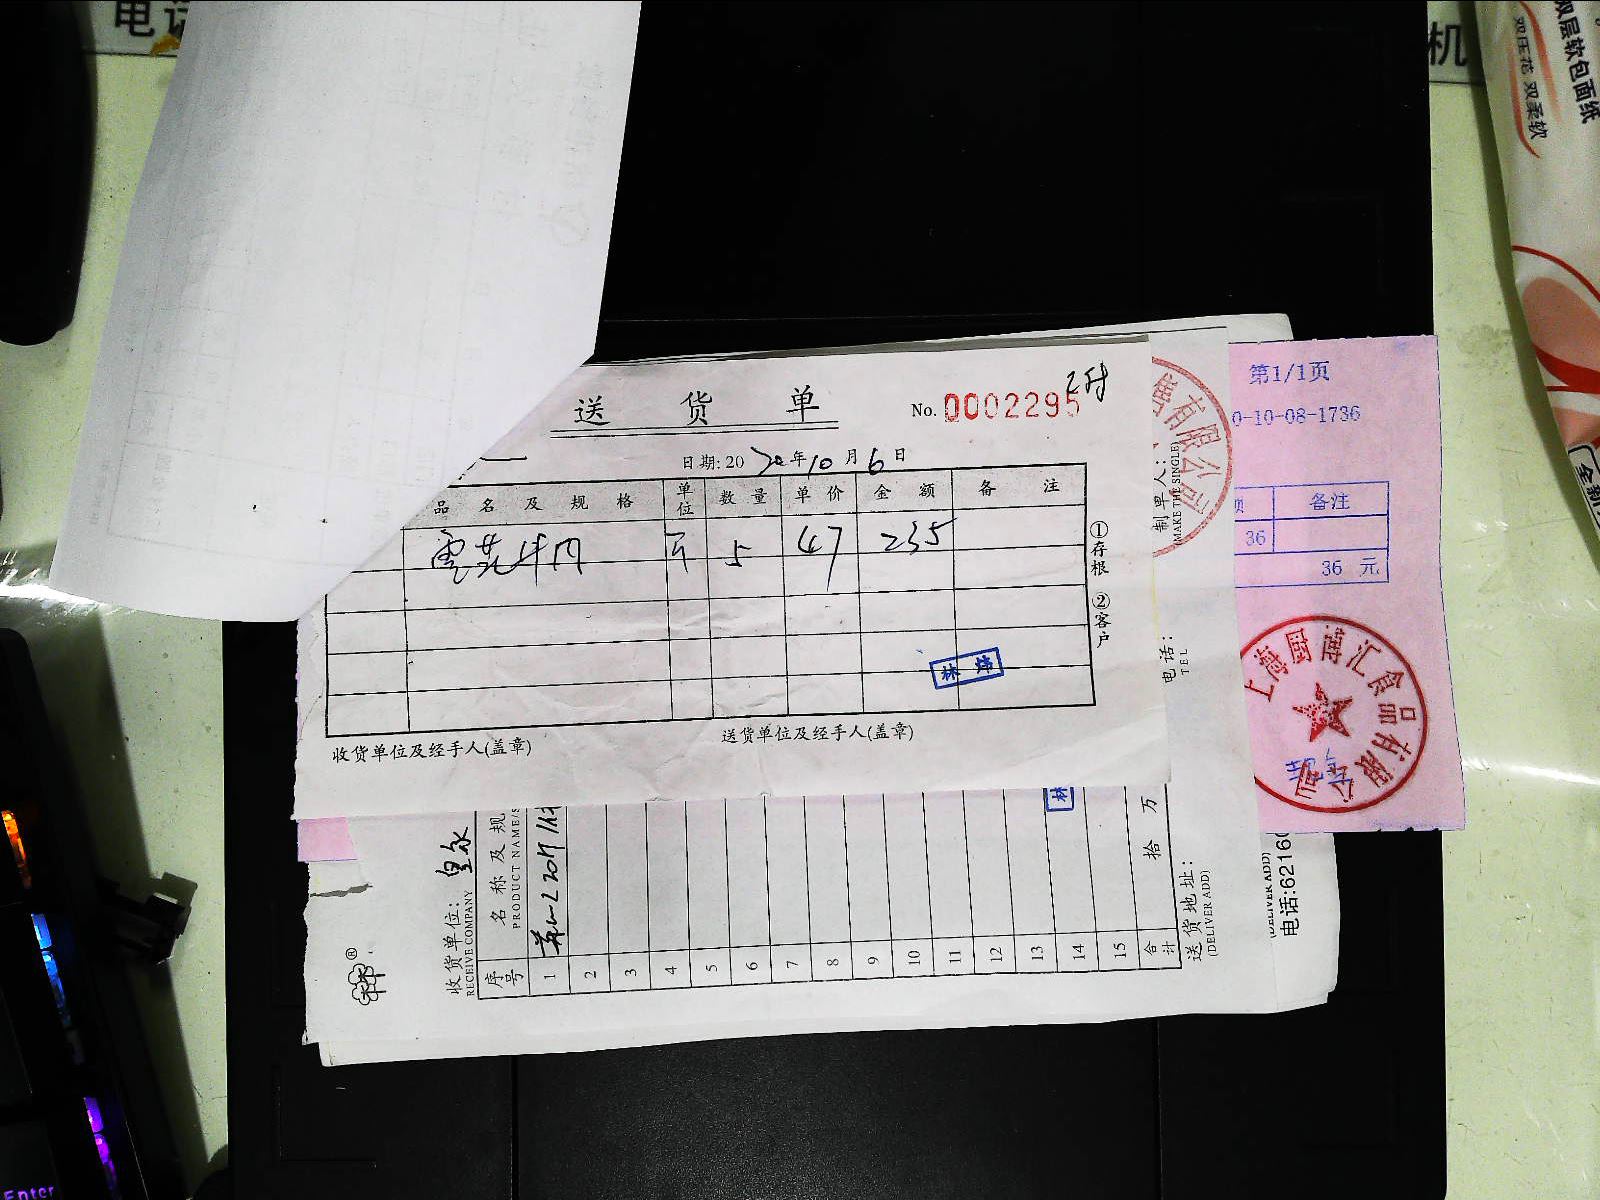 双层软包面纸
双压花 双柔软
机
送货单
No. 0002295
已付
日期: 20 20 年 10 月 6 日
品名及规格 单位 数量 单价 金额 备注
雪花牛肉 斤 5 47 235
①存根 ②客户
林炜
收货单位及经手人(盖章)
送货单位及经手人(盖章)
有限公司
制单人:
(MAKE THE SINGLE)
电话:
TEL
第1/1页
0-10-08-1736
备注
36
36 元
上海国南汇食品有限公司
收货单位:
RECEIVE COMPANY
序号
名称及规
PRODUCT NAME/S
1
2
3
4
5
6
7
8
9
10
11
12
13
14
15
合计
拾 万
林
送货地址:
(DELIVER ADD)
(DELIVER ADD)
电话:6216
Enter